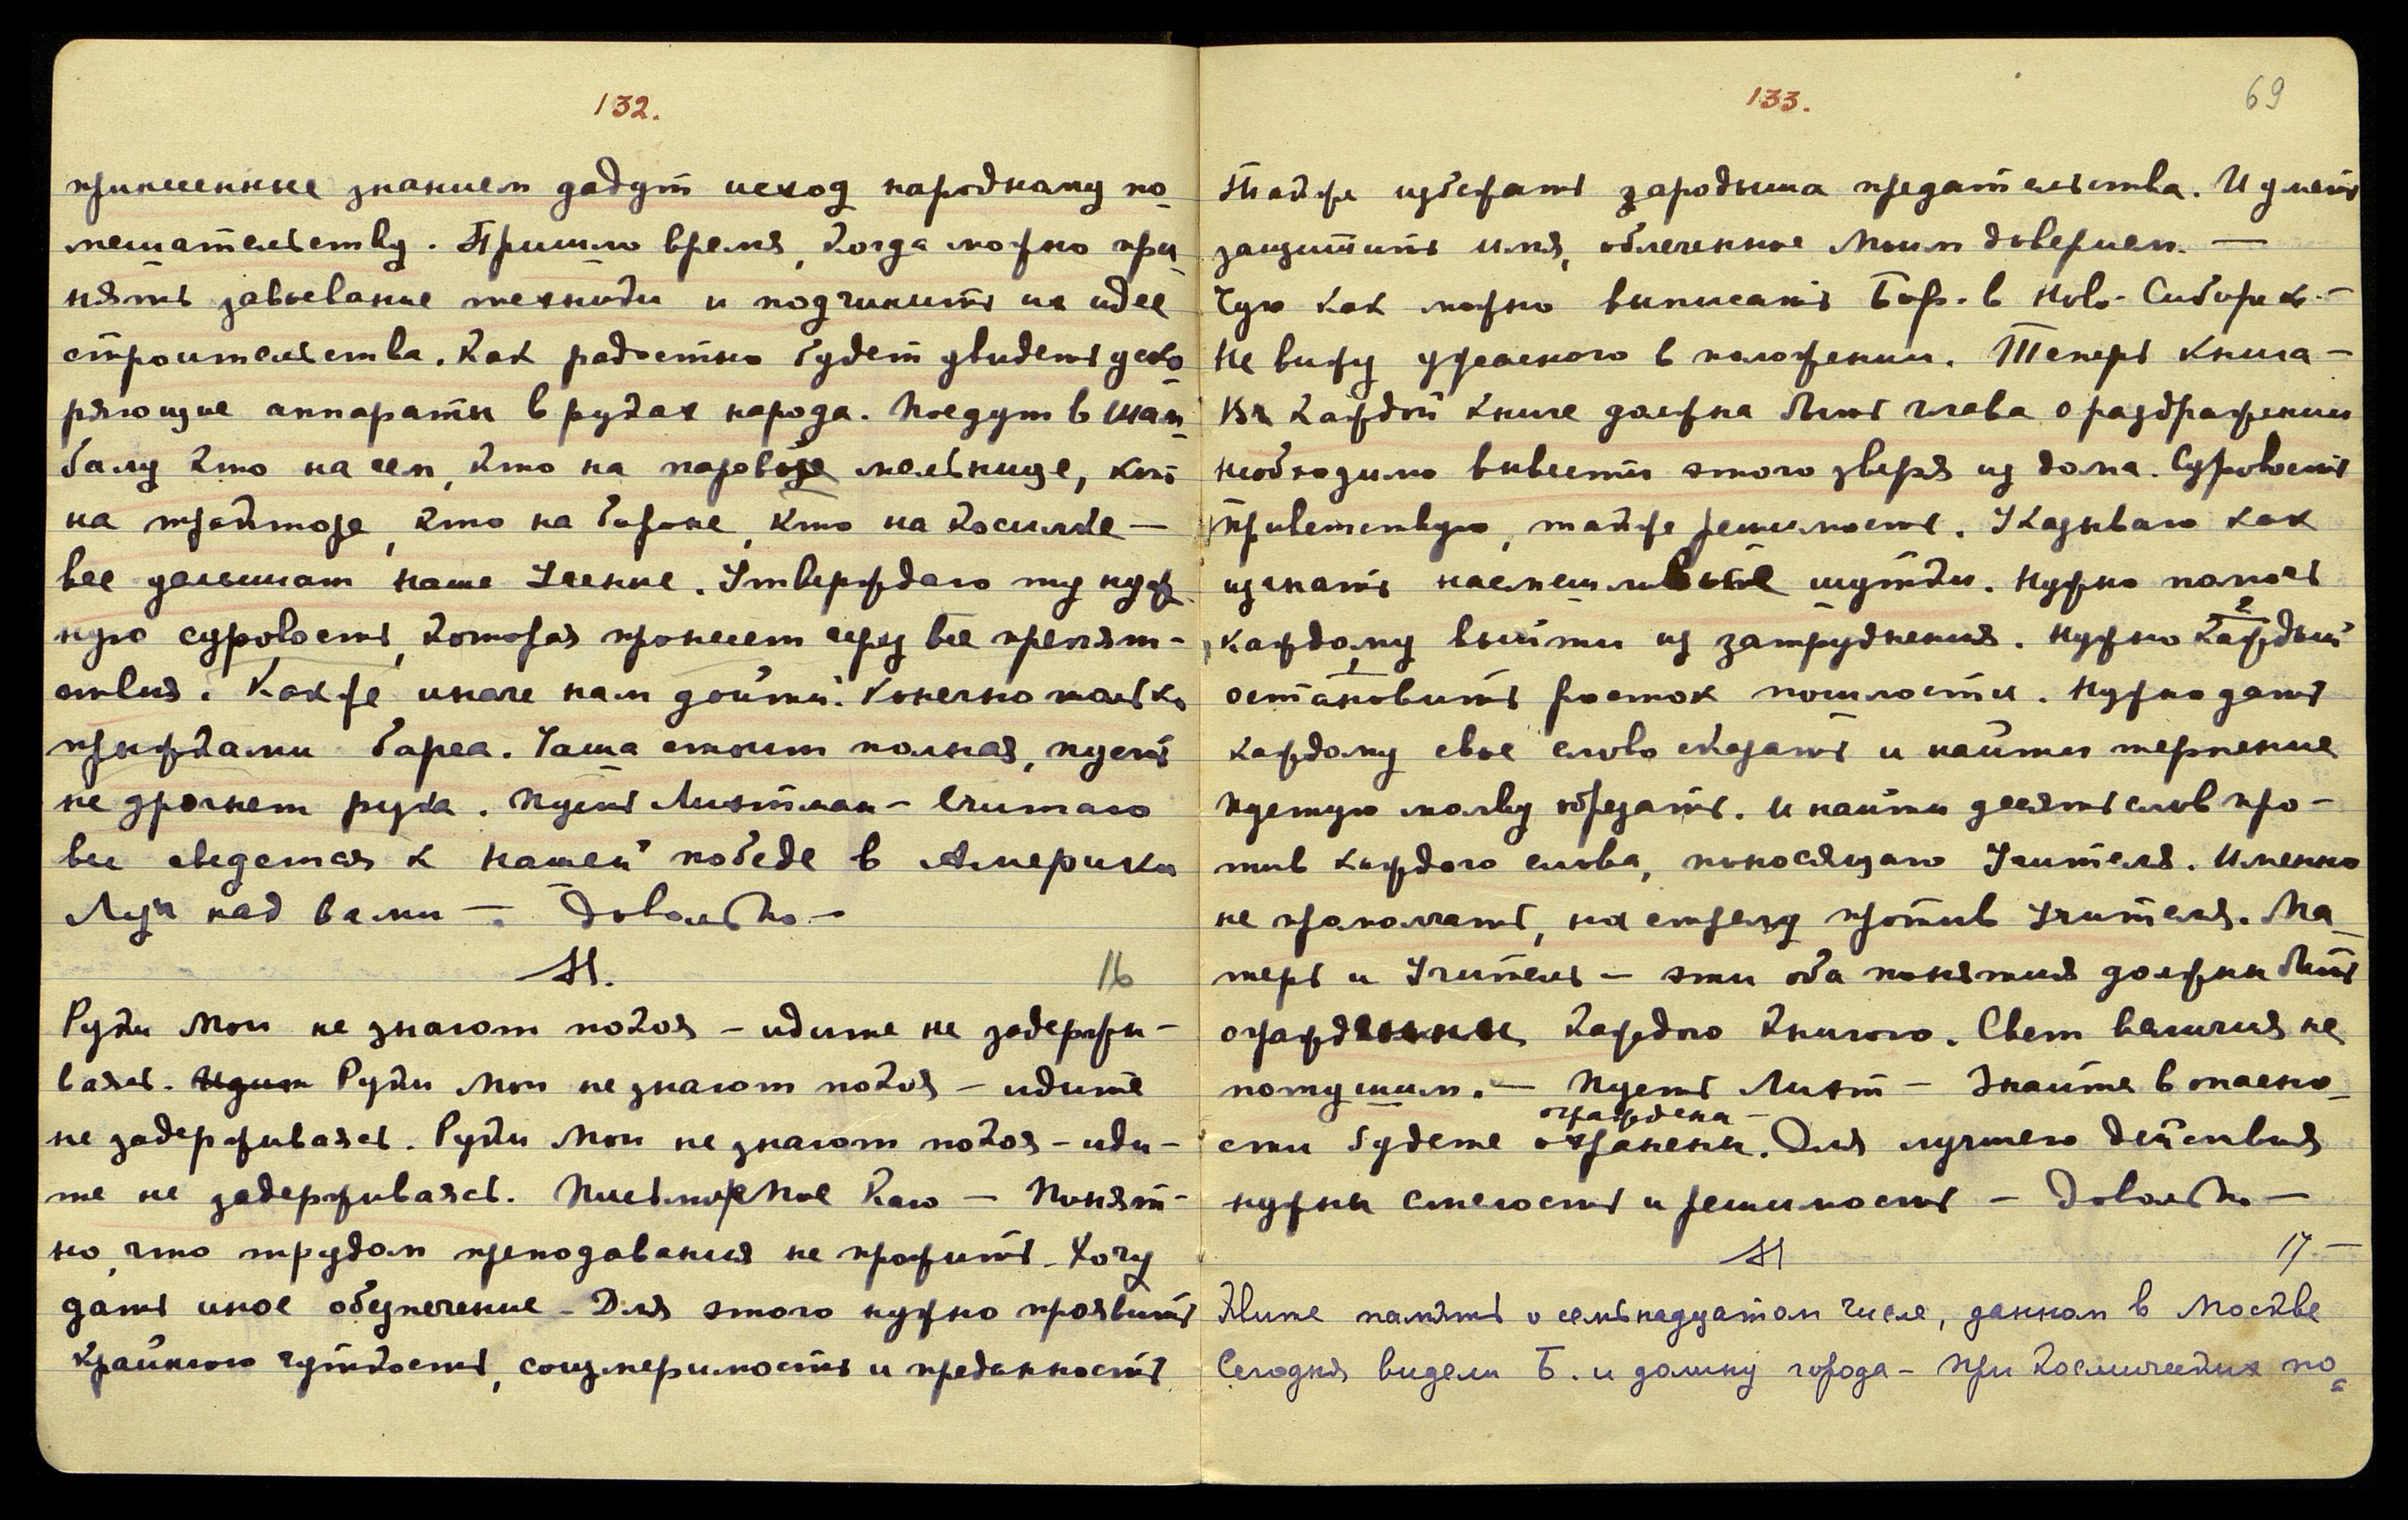 132.
принесенные знанием дадут исход народному по-
мешательству. Пришло время, когда можно при-
нять завоевание техники и подчинить их идее
строительства. Как радостно будет увидеть уско-
ряющие аппараты в руках народа. Поедут в Шам-
балу кто на чем, кто на паровозе мельнице, кто
на тракторе, кто на бороне, кто на косилке —
все услышат наше Учение. Утверждаю ту нуж-
ную суровость, которая пронесет через все препят-
ствия. Как же иначе нам дойти. Конечно только
прыжками барса. Чаша стоит полная, пусть
не дрогнет рука. Пусть Лихтман — Считаю
все сведется к нашей победе в Америки
Луч над вами —. Довольно —
М. 16
Руки Мои не знают покоя — идите не задержи-
ваясь. Идит Руки Мои не знают покоя — идите
не задерживаясь. Руки Мои не знают покоя — иди-
те не задерживаясь. Письмо Мое Каю — Понят-
но, что трудом преподавания не прожить. Хочу
дать иное обезпечение — Для этого нужно проявить
крайнюю чуткость, соизмеримость и преданность
133. 69
Также избежать зародыша предательства. И уметь
защитить имя, облеченное Моим доверием. —
Чую как можно выписать Бор. в Ново-Сибирск. —
Не вижу ужасного в положении. Теперь книга —
В каждой книге должна быть глава о раздражении
необходимо вывести этого зверя из дома. Суровость
приветствую, также решимость. Указываю как
изгнать насмешливые шутки. Нужно помочь
каждому выйти из затруднения. Нужно каждый 2
остановить 1 росток пошлости. Нужно дать
каждому свое слово сказать и найти терпение
пустую молву обрезать. И найти десять слов про-
тив каждого слова, поносящаго Учителя. Именно
не промолчать, на стрелу против Учителя. Ма-
терь и Учитель — эти оба понятия должны быть
ограждены каждою книгою. Свет величия не
потушим. — Пусть Лихт — Знайте в опасно-
ограждена —
сти будете охранены. Для лучшего действия
нужны смелость и решимость — Довольно —
М 17 —
Живите память о семьнадцатом числе, данном в Москве
Сегодня видели Б. и долину города — При космических по-